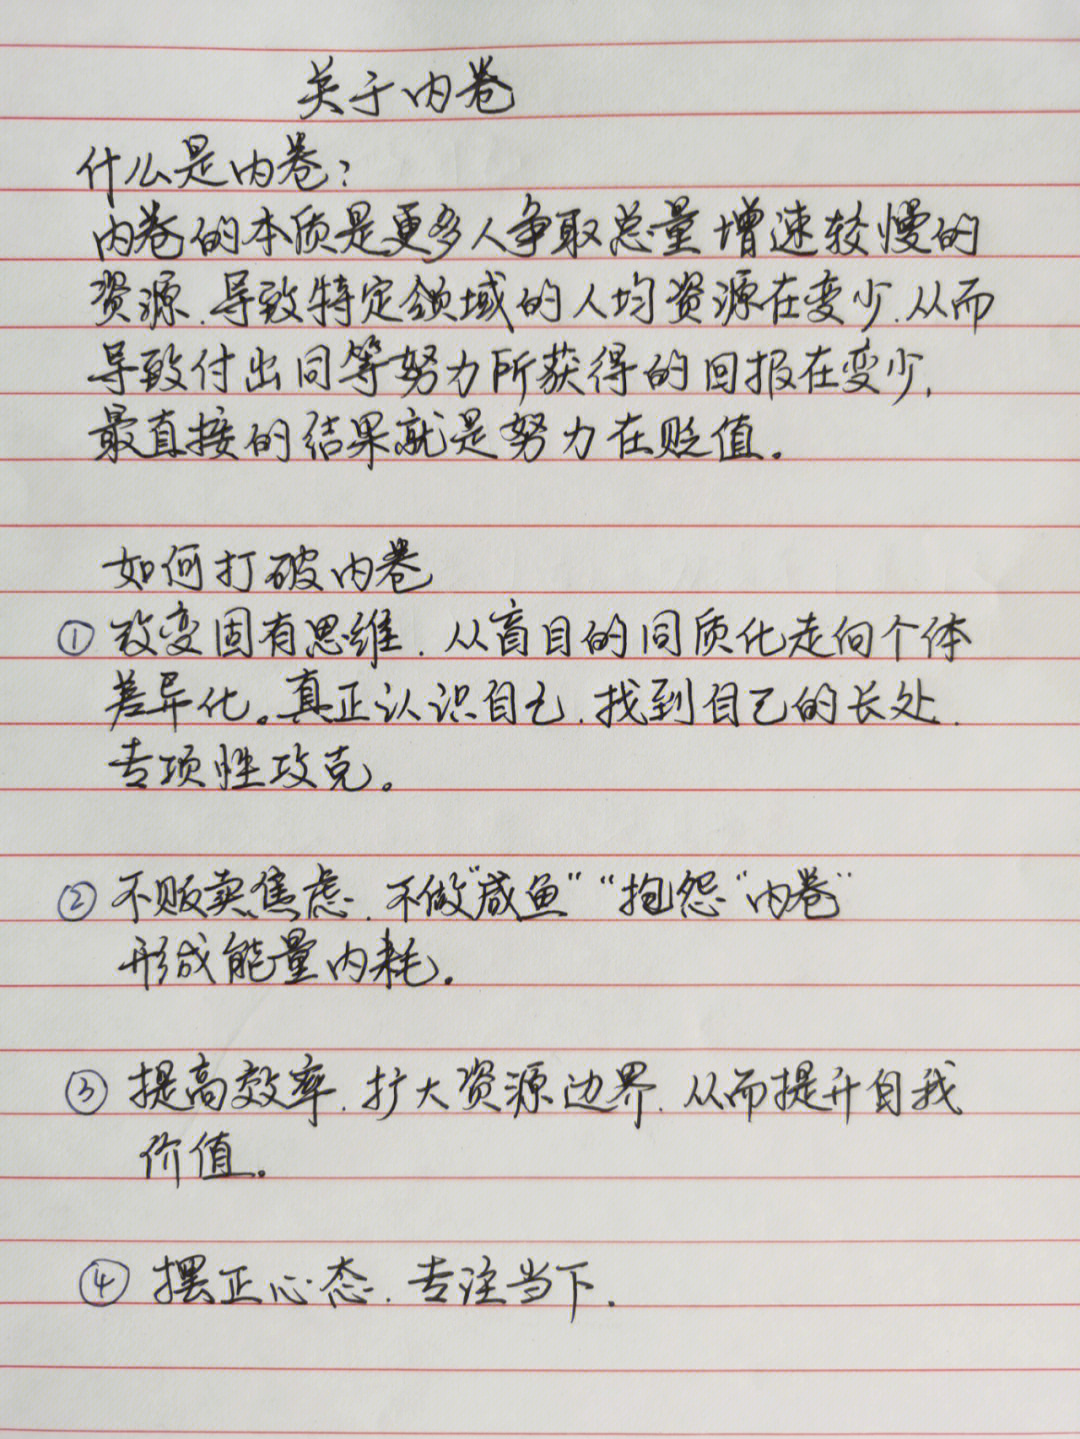 关于内卷
什么是内卷?
内卷的本质是更多人争取总量增速较慢的
资源.导致特定领域的人均资源在变少.从而
导致付出同等努力所获得的回报在变少,
最直接的结果就是努力在贬值。
如何打破内卷
① 改变固有思维.从盲目的同质化走向个体
差异化。真正认识自己.找到自己的长处.
专项性攻克。
② 不贩卖焦虑.不做“咸鱼”“抱怨“内卷”
形成能量内耗。
③ 提高效率.扩大资源边界.从而提升自我
价值。
④ 摆正心态.专注当下.